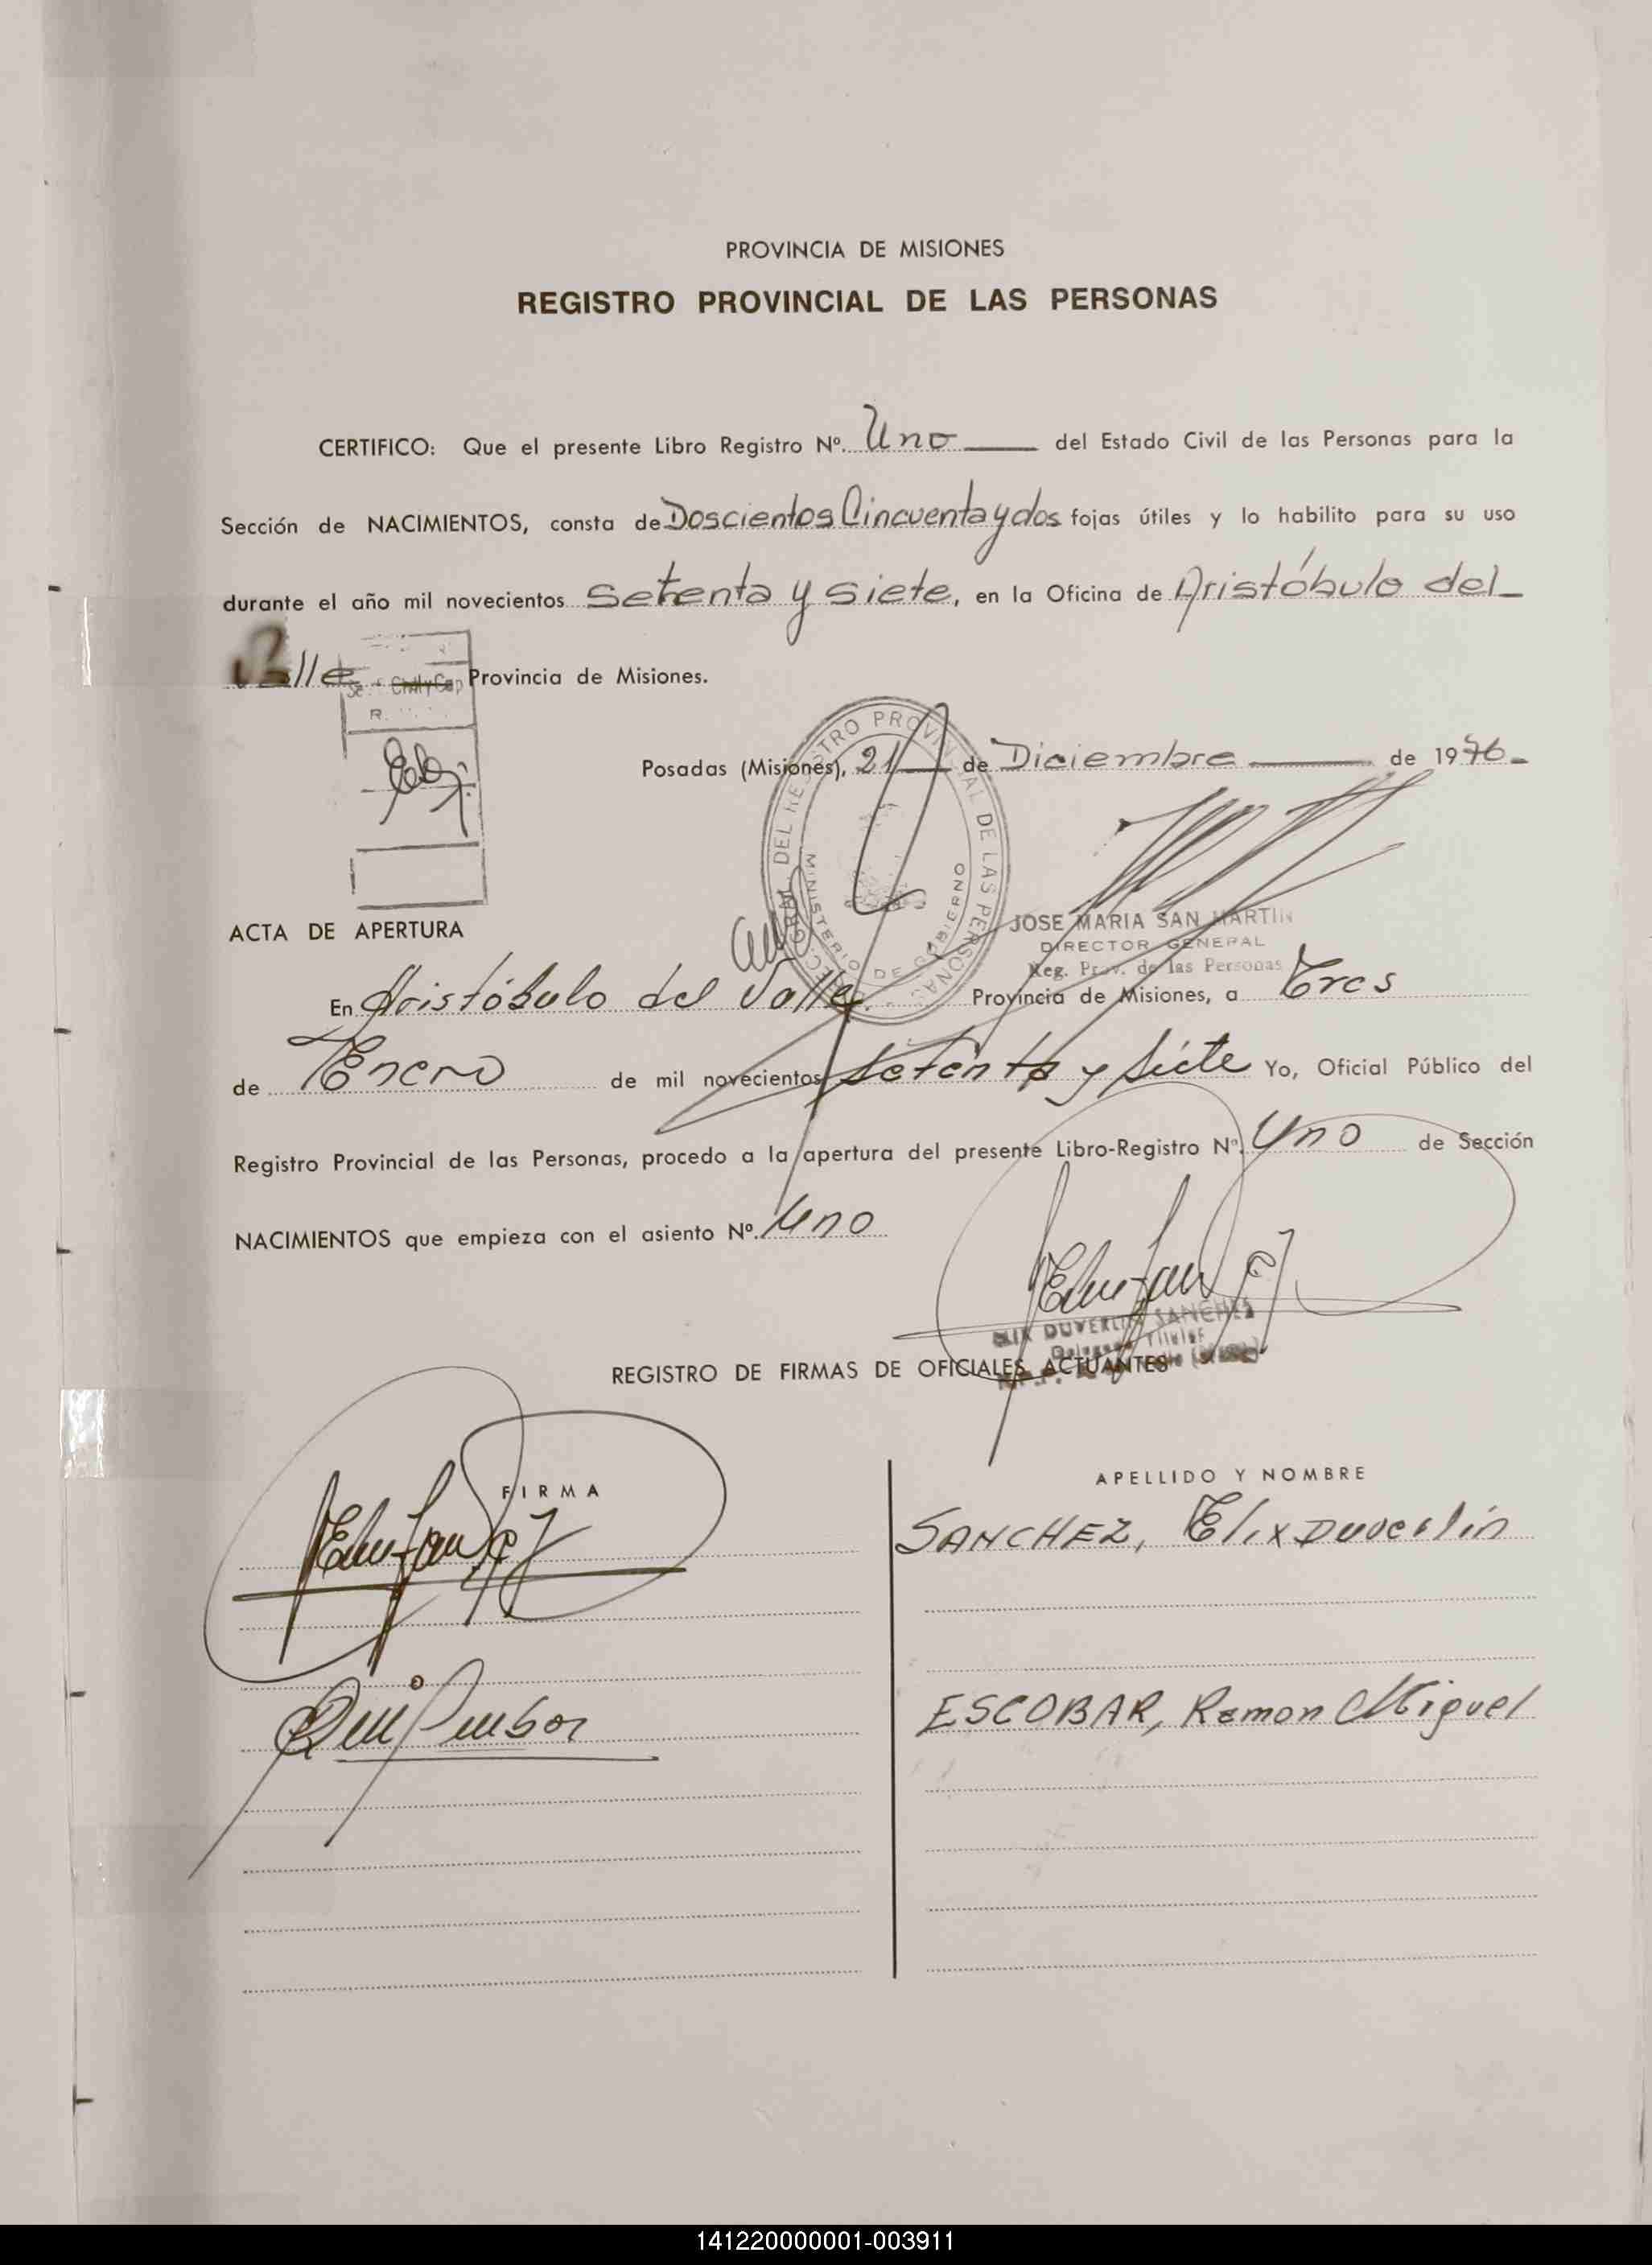 PROVINCIA DE MISIONES
REGISTRO PROVINCIAL DE LAS PERSONAS
CERTIFICO: Que el presente Libro Registro Nº. Uno del Estado Civil de las Personas para la
Sección de NACIMIENTOS, consta de Doscientos Cincuenta y dos fojas útiles y lo habilito para su uso
durante el año mil novecientos Setenta y siete, en la Oficina de Aristóbulo del
Valle Provincia de Misiones.
Posadas (Misiones), 21 de Diciembre de 1976.
DEL REGISTRO PROVINCIAL DE LAS PERSONAS
MINISTERIO DE GOBIERNO
JOSE MARIA SAN MARTIN
DIRECTOR GENERAL
Reg. Prov. de las Personas
ACTA DE APERTURA
En Aristóbulo del Valle Provincia de Misiones, a Tres
de Enero de mil novecientos Setenta y Siete Yo, Oficial Público del
Registro Provincial de las Personas, procedo a la apertura del presente Libro-Registro Nº. Uno de Sección
NACIMIENTOS que empieza con el asiento Nº. Uno
ELIX DUVERLIN SANCHEZ
REGISTRO DE FIRMAS DE OFICIALES ACTUANTES
FIRMA
APELLIDO Y NOMBRE
SANCHEZ, Elix Duverlin
ESCOBAR, Ramon Miguel
141220000001-003911